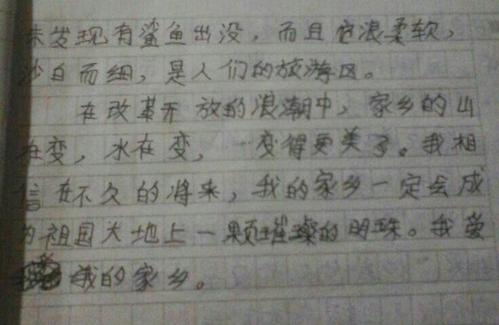 未发现有鲨鱼出没，而且它浪柔软，
沙白而细，是人们的旅游区。
在改革开放的浪潮中，家乡的山
在变，水在变，一变得更美了。我相
信在不久的将来，我的家乡一定会成
为祖国大地上一颗璀璨的明珠。我爱
我的家乡。